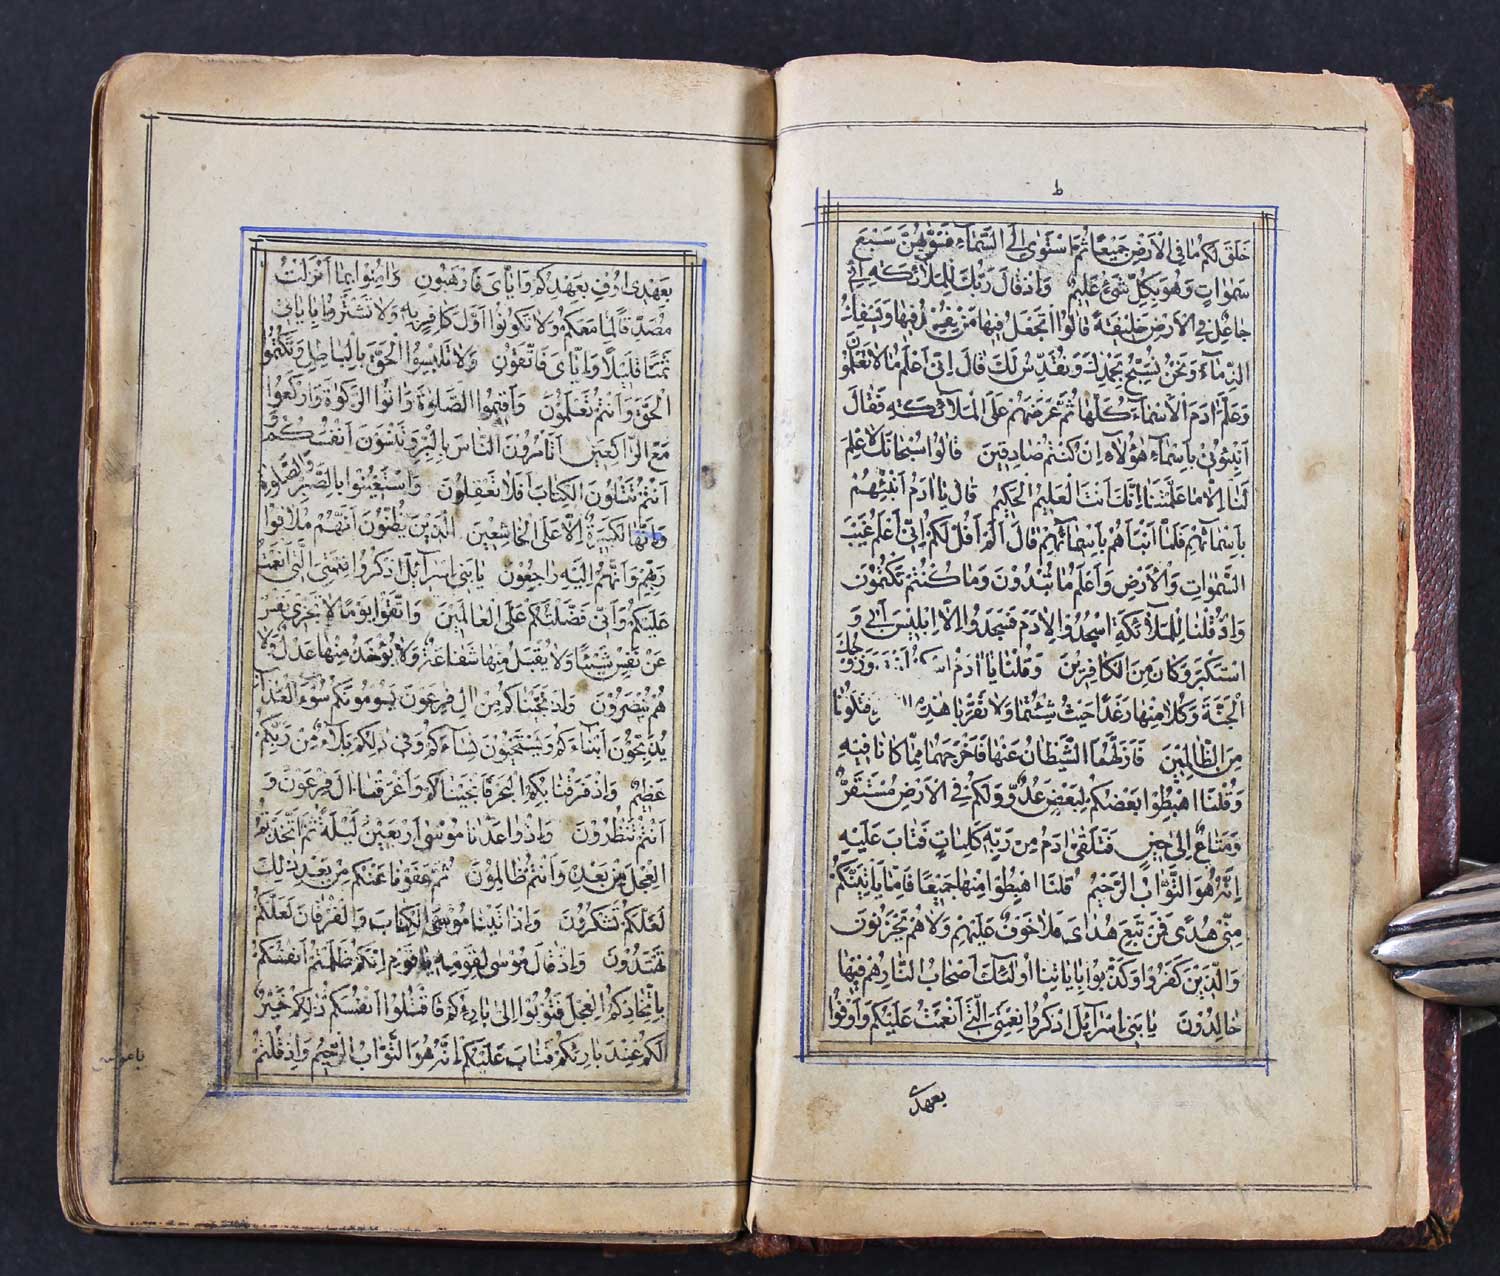 خلق لكم ما في الارض جميعا ثم استوى الى السماء فسويهن سبع
سموات وهو بكل شيء عليم واذ قال ربك للملائكة اني
جاعل في الارض خليفة قالوا اتجعل فيها من يفسد فيها ويسفك
الدماء ونحن نسبح بحمدك ونقدس لك قال اني اعلم ما لا تعلمون
وعلم ادم الاسماء كلها ثم عرضهم على الملائكة فقال
انبئوني باسماء هؤلاء ان كنتم صادقين قالوا سبحانك لا علم
لنا الا ما علمتنا انك انت العليم الحكيم قال يا ادم انبئهم
باسمائهم فلما انباهم باسمائهم قال الم اقل لكم اني اعلم غيب
السموات والارض واعلم ما تبدون وما كنتم تكتمون
واذ قلنا للملائكة اسجدوا لادم فسجدوا الا ابليس ابى و
استكبر وكان من الكافرين وقلنا يا ادم انت وزوجك
الجنة وكلا منها رغدا حيث شئتما ولا تقربا هذه فتكونا
من الظالمين فازلهما الشيطان عنها فاخرجهما مما كانا فيه
وقلنا اهبطوا بعضكم لبعض عدو ولكم في الارض مستقر
ومتاع الى حين فتلقى ادم من ربه كلمات فتاب عليه
انه هو التواب الرحيم قلنا اهبطوا منها جميعا فاما ياتينكم
مني هدى فمن تبع هداي فلا خوف عليهم ولا هم يحزنون
والذين كفروا وكذبوا باياتنا اولئك اصحاب النار هم فيها
خالدون يا بني اسرائيل اذكروا نعمتي التي انعمت عليكم واوفوا
بعهدي
بعهدي اوف بعهدكم واياي فارهبون وامنوا بما انزلت
مصدقا لما معكم ولا تكونوا اول كافر به ولا تشتروا باياتي
ثمنا قليلا واياي فاتقون ولا تلبسوا الحق بالباطل وتكتموا
الحق وانتم تعلمون واقيموا الصلوة واتوا الزكوة واركعوا
مع الراكعين اتامرون الناس بالبر وتنسون انفسكم و
انتم تتلون الكتاب افلا تعقلون واستعينوا بالصبر والصلوة
وانها لكبيرة الا على الخاشعين الذين يظنون انهم ملاقوا
ربهم وانهم اليه راجعون يا بني اسرائيل اذكروا نعمتي التي انعمت
عليكم واني فضلتكم على العالمين واتقوا يوما لا تجزي نفس
عن نفس شيئا ولا يقبل منها شفاعة ولا يؤخذ منها عدل ولا
هم ينصرون واذ نجيناكم من ال فرعون يسومونكم سوء العذاب
يذبحون ابناءكم ويستحيون نساءكم وفي ذلكم بلاء من ربكم
عظيم واذ فرقنا بكم البحر فانجيناكم واغرقنا ال فرعون و
انتم تنظرون واذ واعدنا موسى اربعين ليلة ثم اتخذتم
العجل من بعده وانتم ظالمون ثم عفونا عنكم من بعد ذلك
لعلكم تشكرون واذ اتينا موسى الكتاب والفرقان لعلكم
تهتدون واذ قال موسى لقومه يا قوم انكم ظلمتم انفسكم
باتخاذكم العجل فتوبوا الى بارئكم فاقتلوا انفسكم ذلكم خير
لكم عند بارئكم فتاب عليكم انه هو التواب الرحيم واذ قلتم